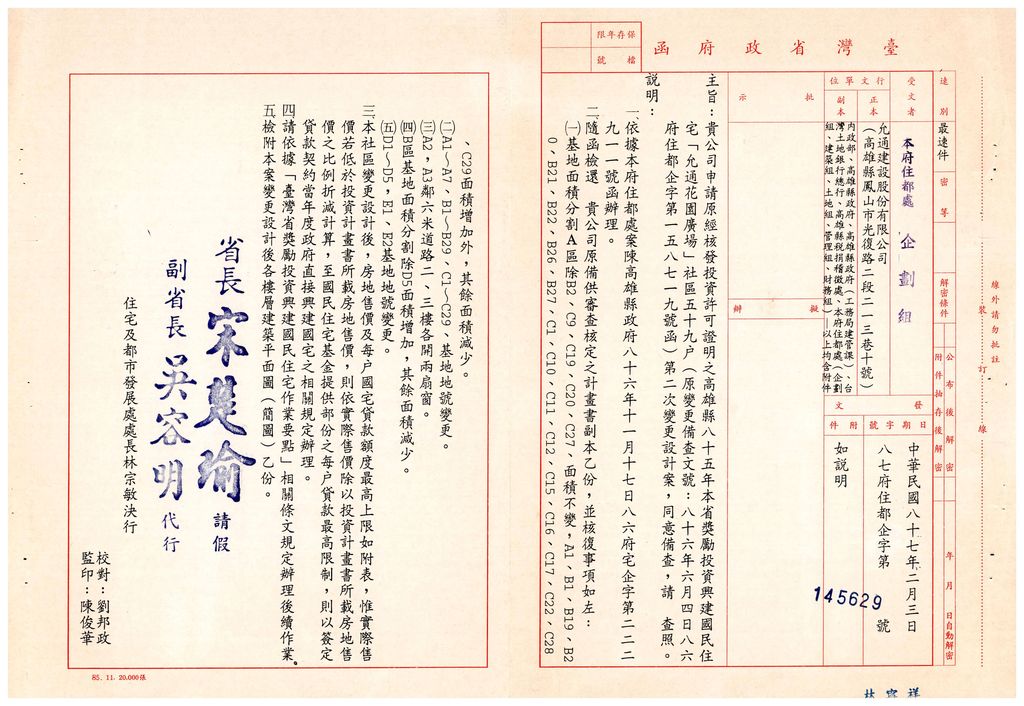 臺灣省政府函
保存年限
檔號
速別
最速件
密等
解密條件
公布後解密
附件抽存後解密
年月日自動解密
受文者
本府住都處 企劃組
行文單位
正本
允通建設股份有限公司
(高雄縣鳳山市光復路二段二一三巷十號)
副本
內政部、高雄縣政府、高雄縣政府(工務局建管課)、台
灣土地銀行總行、高雄縣稅捐稽徵處、本府住都處(企劃
組、建築組、土地組、管理組、財務組)—以上均含附件
發文
日期
中華民國八十七年二月三日
字號
八七府住都企字第145629號
附件
如說明
批示
擬辦
主旨:貴公司申請原經核發投資許可證明之高雄縣八十五年本省獎勵投資興建國民住
宅「允通花園廣場」社區五十九戶(原變更備查文號:八十六年六月四日八六
府住都企字第一五八七一九號函)第二次變更設計案,同意備查,請 查照。
說明:
一、依據本府住都處案陳高雄縣政府八十六年十一月十七日八六府宅企字第二二二
九一一號函辦理。
二、隨函檢還 貴公司原備供審查核定之計畫書副本乙份,並核復事項如左:
(一)基地面積分割A區除B2,C9,C19,C20,C27,面積不變,A1,B1,B19,B2
0,B21,B22,B26,B27,C1,C10,C11,C12,C15,C16,C17,C22,C28
,C29面積增加外,其餘面積減少。
(二)A1~A7,B1~B29,C1~C29,基地地號變更。
(三)A2,A3鄰六米道路二、三樓各開兩扇窗。
(四)B區基地面積分割除D5面積增加,其餘面積減少。
(五)D1~D5,E1,E2基地地號變更。
三、本社區變更設計後,房地售價及每戶國宅貸款額度最高上限如附表,惟實際售
價若低於投資計畫書所載房地售價,則依實際售價除以投資計畫書所載房地售
價之比例折減計算,至國民住宅基金提供部份之每戶貸款最高限制,則以簽定
貸款契約當年度政府直接興建國宅之相關規定辦理。
四、請依據「臺灣省獎勵投資興建國民住宅作業要點」相關條文規定辦理後續作業。
五、檢附本案變更設計後各樓層建築平面圖(簡圖)乙份。
省長 宋楚瑜 請假
副省長 吳容明 代行
住宅及都市發展處處長林宗敏決行
校對:劉邦政
監印:陳俊華
85.11.20,000張
裝訂線
線外請勿批註